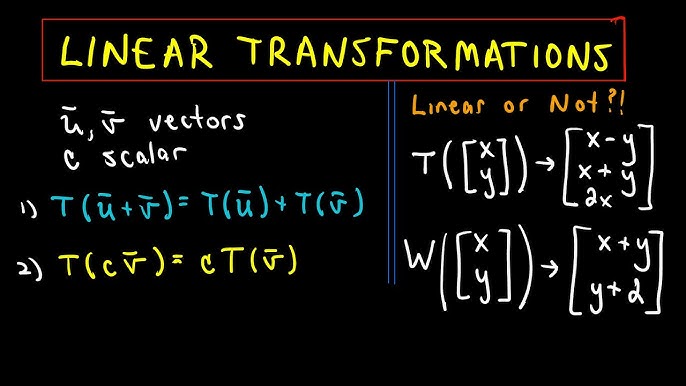 LINEAR TRANSFORMATIONS
ū, v̄ vectors
c scalar
1) T(ū+v̄)= T(ū)+T(v̄)
2) T(cv̄)= cT(v̄)
Linear or Not?!
T([x y]) → [x-y x+y 2x]
W([x y]) → [x+y y+2]